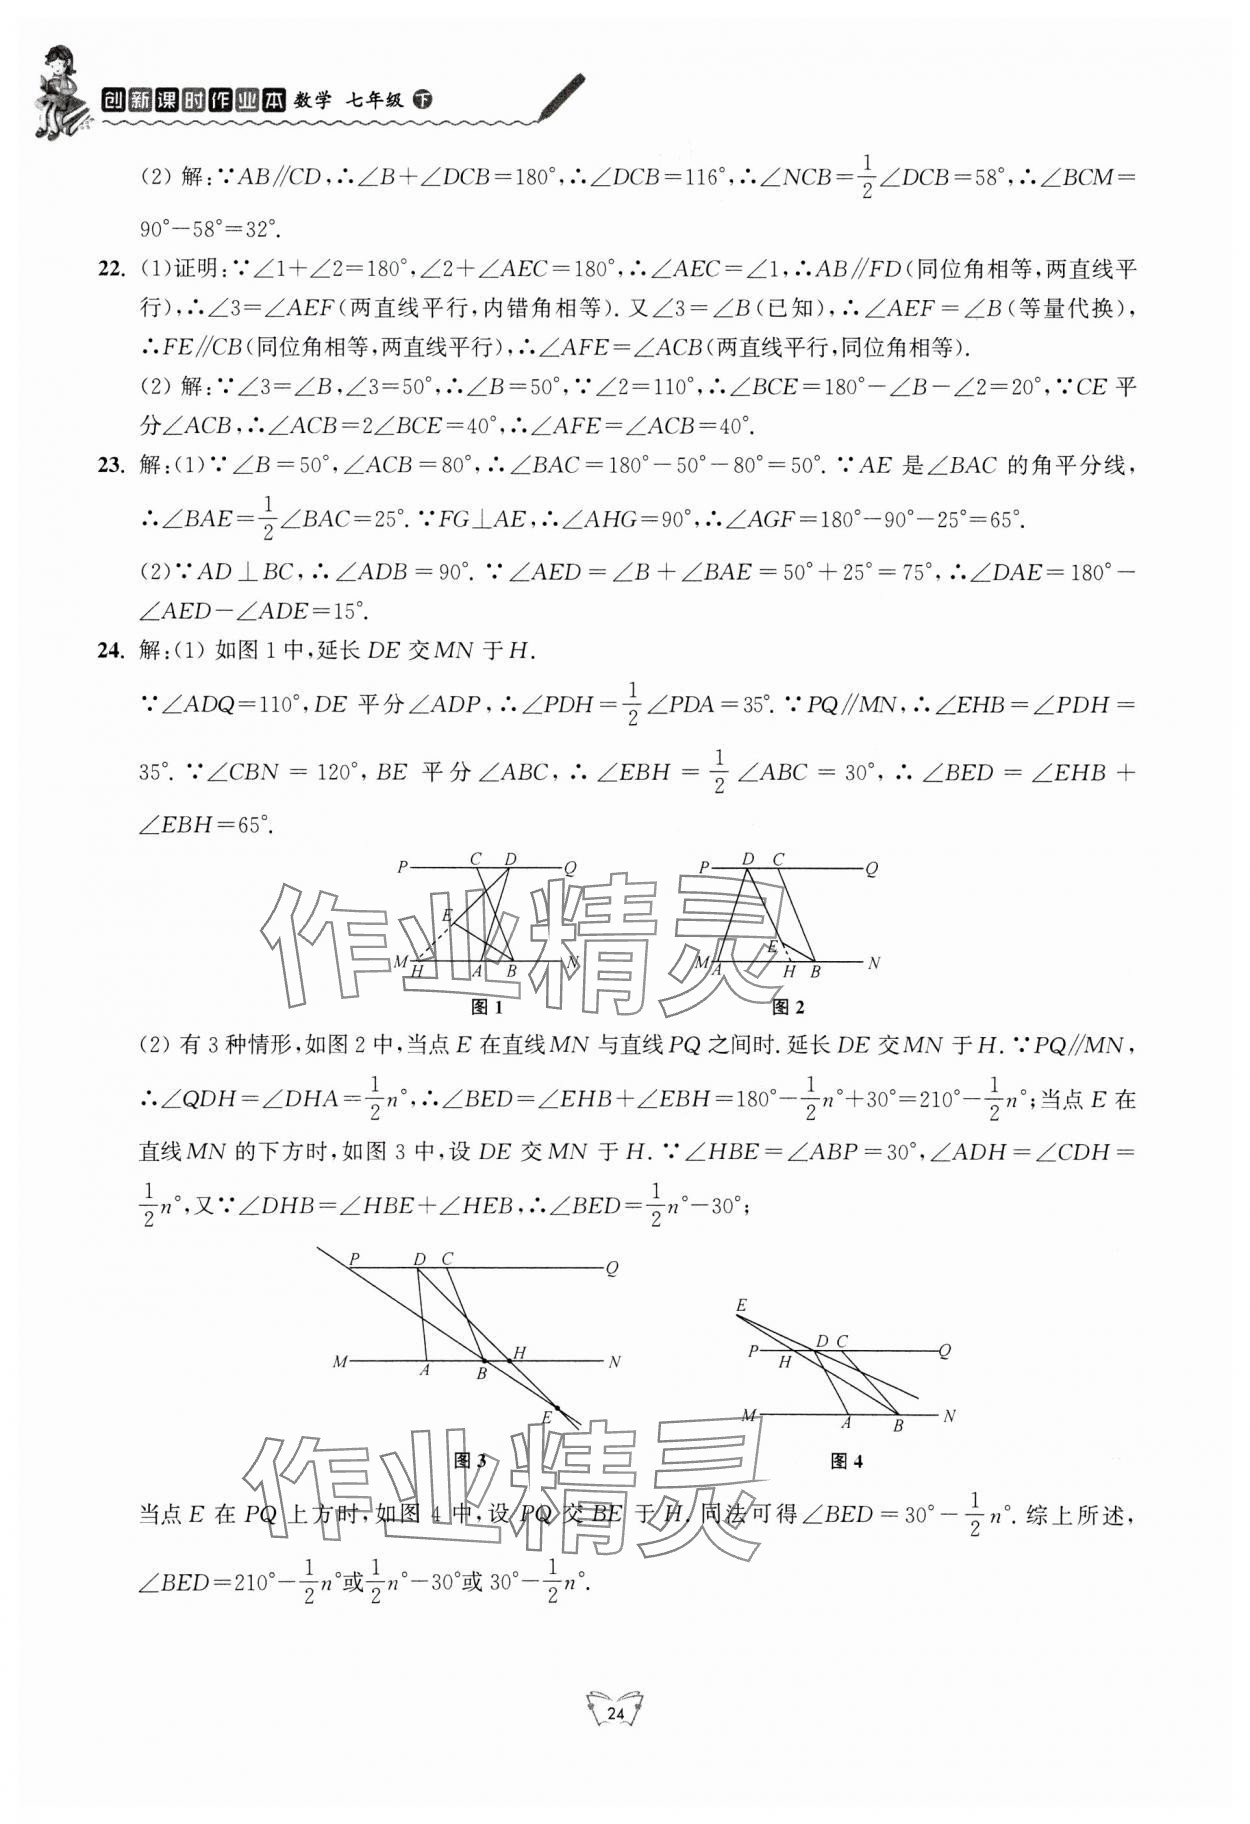 创新课时作业本 数学 七年级 下
(2) 解:∵AB∥CD,∴∠B+∠DCB=180°,∴∠DCB=116°,∴∠NCB=1/2∠DCB=58°,∴∠BCM=
90°-58°=32°.
22. (1)证明:∵∠1+∠2=180°,∠2+∠AEC=180°,∴∠AEC=∠1,∴AB∥FD(同位角相等,两直线平
行),∴∠3=∠AEF(两直线平行,内错角相等). 又∠3=∠B(已知),∴∠AEF=∠B(等量代换),
∴FE∥CB(同位角相等,两直线平行),∴∠AFE=∠ACB(两直线平行,同位角相等).
(2) 解:∵∠3=∠B,∠3=50°,∴∠B=50°,∵∠2=110°,∴∠BCE=180°-∠B-∠2=20°,∵CE 平
分∠ACB,∴∠ACB=2∠BCE=40°,∴∠AFE=∠ACB=40°.
23. 解:(1)∵∠B=50°,∠ACB=80°,∴∠BAC=180°-50°-80°=50°. ∵AE 是∠BAC 的角平分线,
∴∠BAE=1/2∠BAC=25°. ∵FG⊥AE,∴∠AHG=90°,∴∠AGF=180°-90°-25°=65°.
(2)∵AD⊥BC,∴∠ADB=90°. ∵∠AED=∠B+∠BAE=50°+25°=75°,∴∠DAE=180°-
∠AED-∠ADE=15°.
24. 解:(1) 如图 1 中,延长 DE 交 MN 于 H.
∵∠ADQ=110°,DE 平分∠ADP,∴∠PDH=1/2∠PDA=35°. ∵PQ∥MN,∴∠EHB=∠PDH=
35°. ∵∠CBN=120°,BE 平分∠ABC,∴∠EBH=1/2∠ABC=30°,∴∠BED=∠EHB+
∠EBH=65°.
P C D Q P D C Q
E E
M H A B N M A H B N
图 1 图 2
(2) 有 3 种情形,如图 2 中,当点 E 在直线 MN 与直线 PQ 之间时. 延长 DE 交 MN 于 H. ∵PQ∥MN,
∴∠QDH=∠DHA=1/2n°,∴∠BED=∠EHB+∠EBH=180°-1/2n°+30°=210°-1/2n°;当点 E 在
直线 MN 的下方时,如图 3 中,设 DE 交 MN 于 H. ∵∠HBE=∠ABP=30°,∠ADH=∠CDH=
1/2n°,又∵∠DHB=∠HBE+∠HEB,∴∠BED=1/2n°-30°;
P D C Q
E
P H D C Q
M A B H N
M A B N
E
图 3 图 4
当点 E 在 PQ 上方时,如图 4 中,设 PQ 交 BE 于 H. 同法可得∠BED=30°-1/2n°. 综上所述,
∠BED=210°-1/2n°或1/2n°-30°或 30°-1/2n°.
24
作业精灵
作业精灵